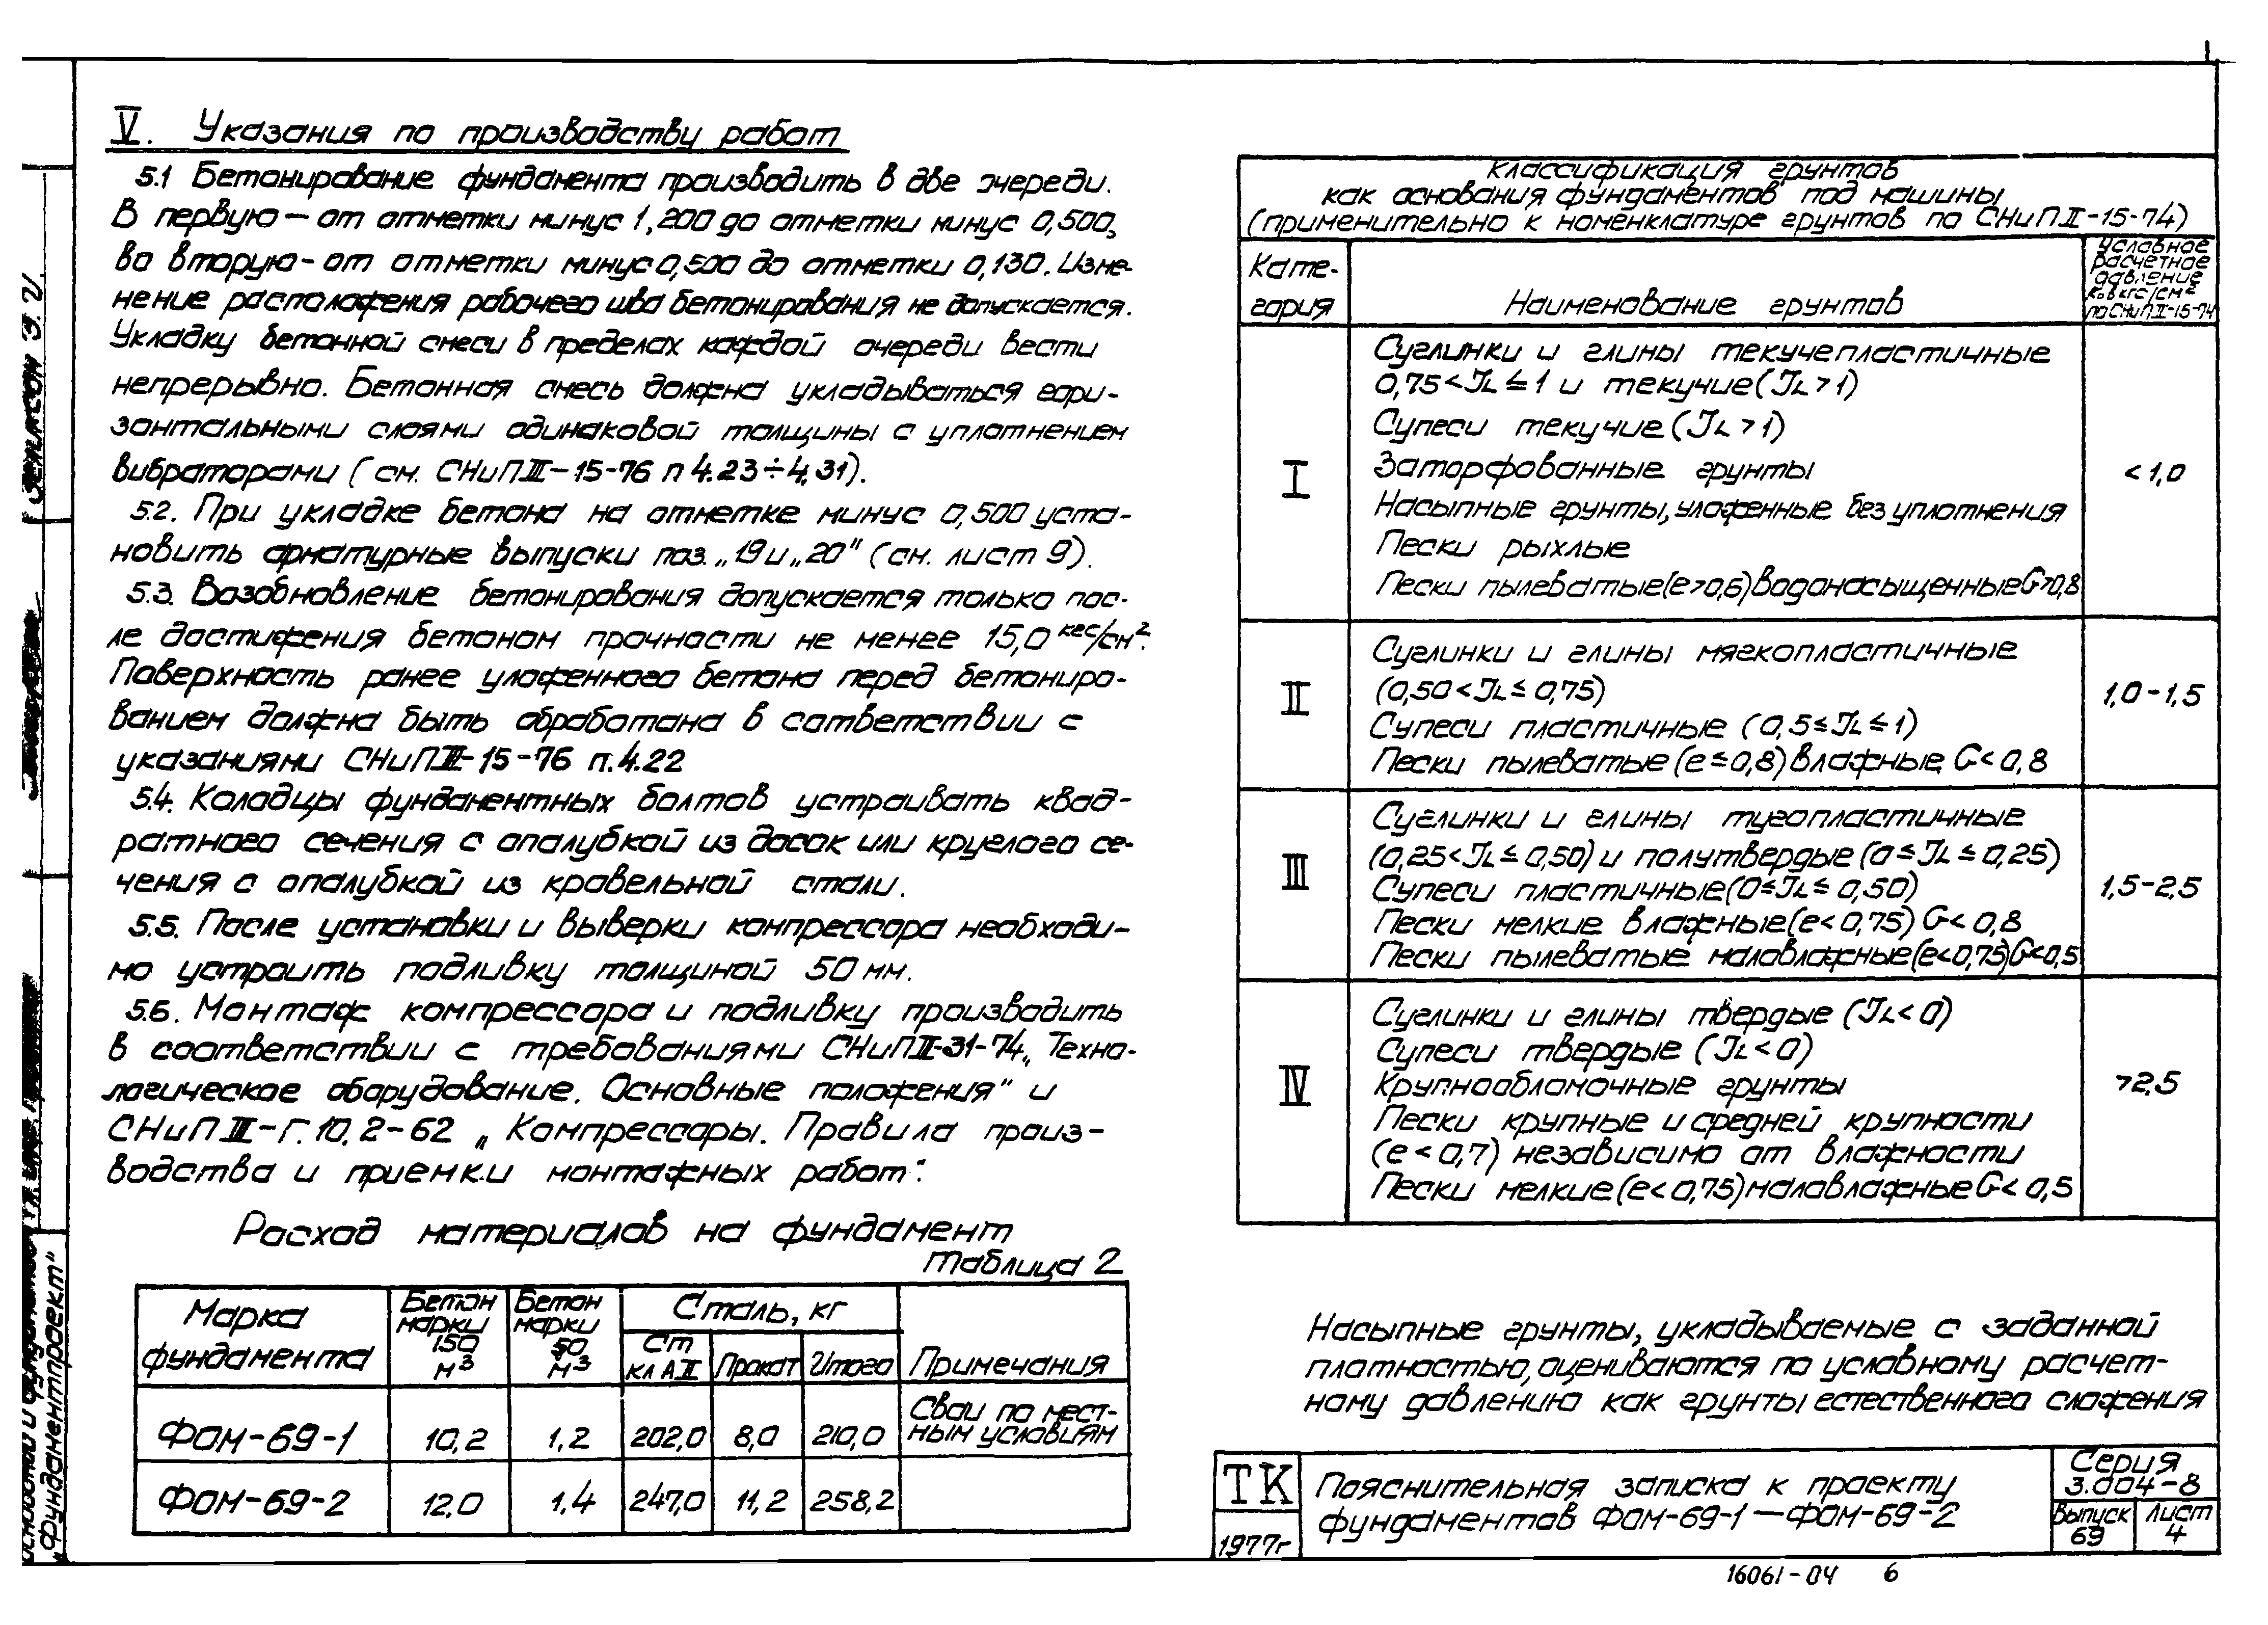 V. Указания по производству работ
5.1 Бетонирование фундамента производить в две очереди.
В первую — от отметки минус 1,200 до отметки минус 0,500,
во вторую - от отметки минус 0,500 до отметки 0,130. Изме-
нение расположения рабочего шва бетонирования не допускается.
Укладку бетонной смеси в пределах каждой очереди вести
непрерывно. Бетонная смесь должна укладываться гори-
зонтальными слоями одинаковой толщины с уплотнением
вибраторами (см. СНиП III-15-76 п 4.23÷4.31).
5.2. При укладке бетона на отметке минус 0,500 уста-
новить арматурные выпуски поз. „19 и „20" (см. лист 9).
5.3. Возобновление бетонирования допускается только пос-
ле достижения бетоном прочности не менее 15,0 кгс/см².
Поверхность ранее уложенного бетона перед бетониро-
ванием должна быть обработана в сответствии с
указаниями СНиП III-15-76 п.4.22
5.4. Колодцы фундаментных болтов устраивать квад-
ратного сечения с опалубкой из досок или круглого се-
чения с опалубкой из кровельной стали.
5.5. После установки и выверки компрессора необходи-
мо устроить подливку толщиной 50 мм.
5.6. Монтаж компрессора и подливку производить
в соответствии с требованиями СНиП III-31-74 „Техно-
логическое оборудование. Основные положения" и
СНиП III-Г.10.2-62 „Компрессоры. Правила произ-
водства и приемки монтажных работ".
Расход материалов на фундамент
Таблица 2
Марка фундамента
Бетон марки 150 м³
Бетон марки 50 м³
Сталь, кг
Ст кл А II
Прокат
Итого
Примечания
ФОМ-69-1 10,2 1,2 202,0 8,0 210,0 Сваи по мест-
ным условиям
ФОМ-69-2 12,0 1,4 247,0 11,2 258,2
Классификация грунтов
как основания фундаментов под машины
(применительно к номенклатуре грунтов по СНиП II-15-74)
Кате-
гория
Наименование грунтов
Условное
расчетное
давление
R₀ в кгс/см²
по СНиП II-15-74
I
Суглинки и глины текучепластичные
0,75<JL≤1 и текучие (JL>1)
Супеси текучие (JL>1)
Заторфованные грунты
Насыпные грунты, уложенные без уплотнения
Пески рыхлые
Пески пылеватые (e>0,6) водонасыщенные G>0,8
<1,0
II
Суглинки и глины мягкопластичные
(0,50<JL≤0,75)
Супеси пластичные (0,5≤JL≤1)
Пески пылеватые (e≤0,8) влажные G<0,8
1,0-1,5
III
Суглинки и глины тугопластичные
(0,25<JL≤0,50) и полутвердые (0≤JL≤0,25)
Супеси пластичные (0≤JL≤0,50)
Пески мелкие влажные (e<0,75) G<0,8
Пески пылеватые маловлажные (e<0,75) G<0,5
1,5-2,5
IV
Суглинки и глины твердые (JL<0)
Супеси твердые (JL<0)
Крупнообломочные грунты
Пески крупные и средней крупности
(e<0,7) независимо от влажности
Пески мелкие (e<0,75) маловлажные G<0,5
>2,5
Насыпные грунты, укладываемые с заданной
плотностью, оцениваются по условному расчет-
ному давлению как грунты естественного сложения
ТК
1977г
Пояснительная записка к проекту
фундаментов ФОМ-69-1 — ФОМ-69-2
Серия
3.004-8
Выпуск
69
Лист
4
16061-04 6
оснований и фундаментов
„Фундаментпроект"